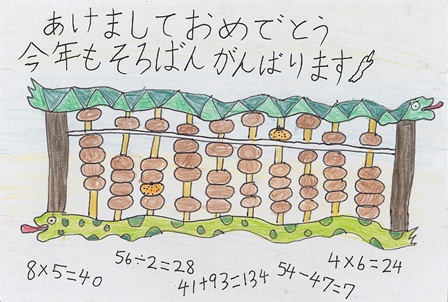 あけましておめでとう
今年もそろばんがんばります
8×5=40
56÷2=28
41+93=134
54-47=7
4×6=24